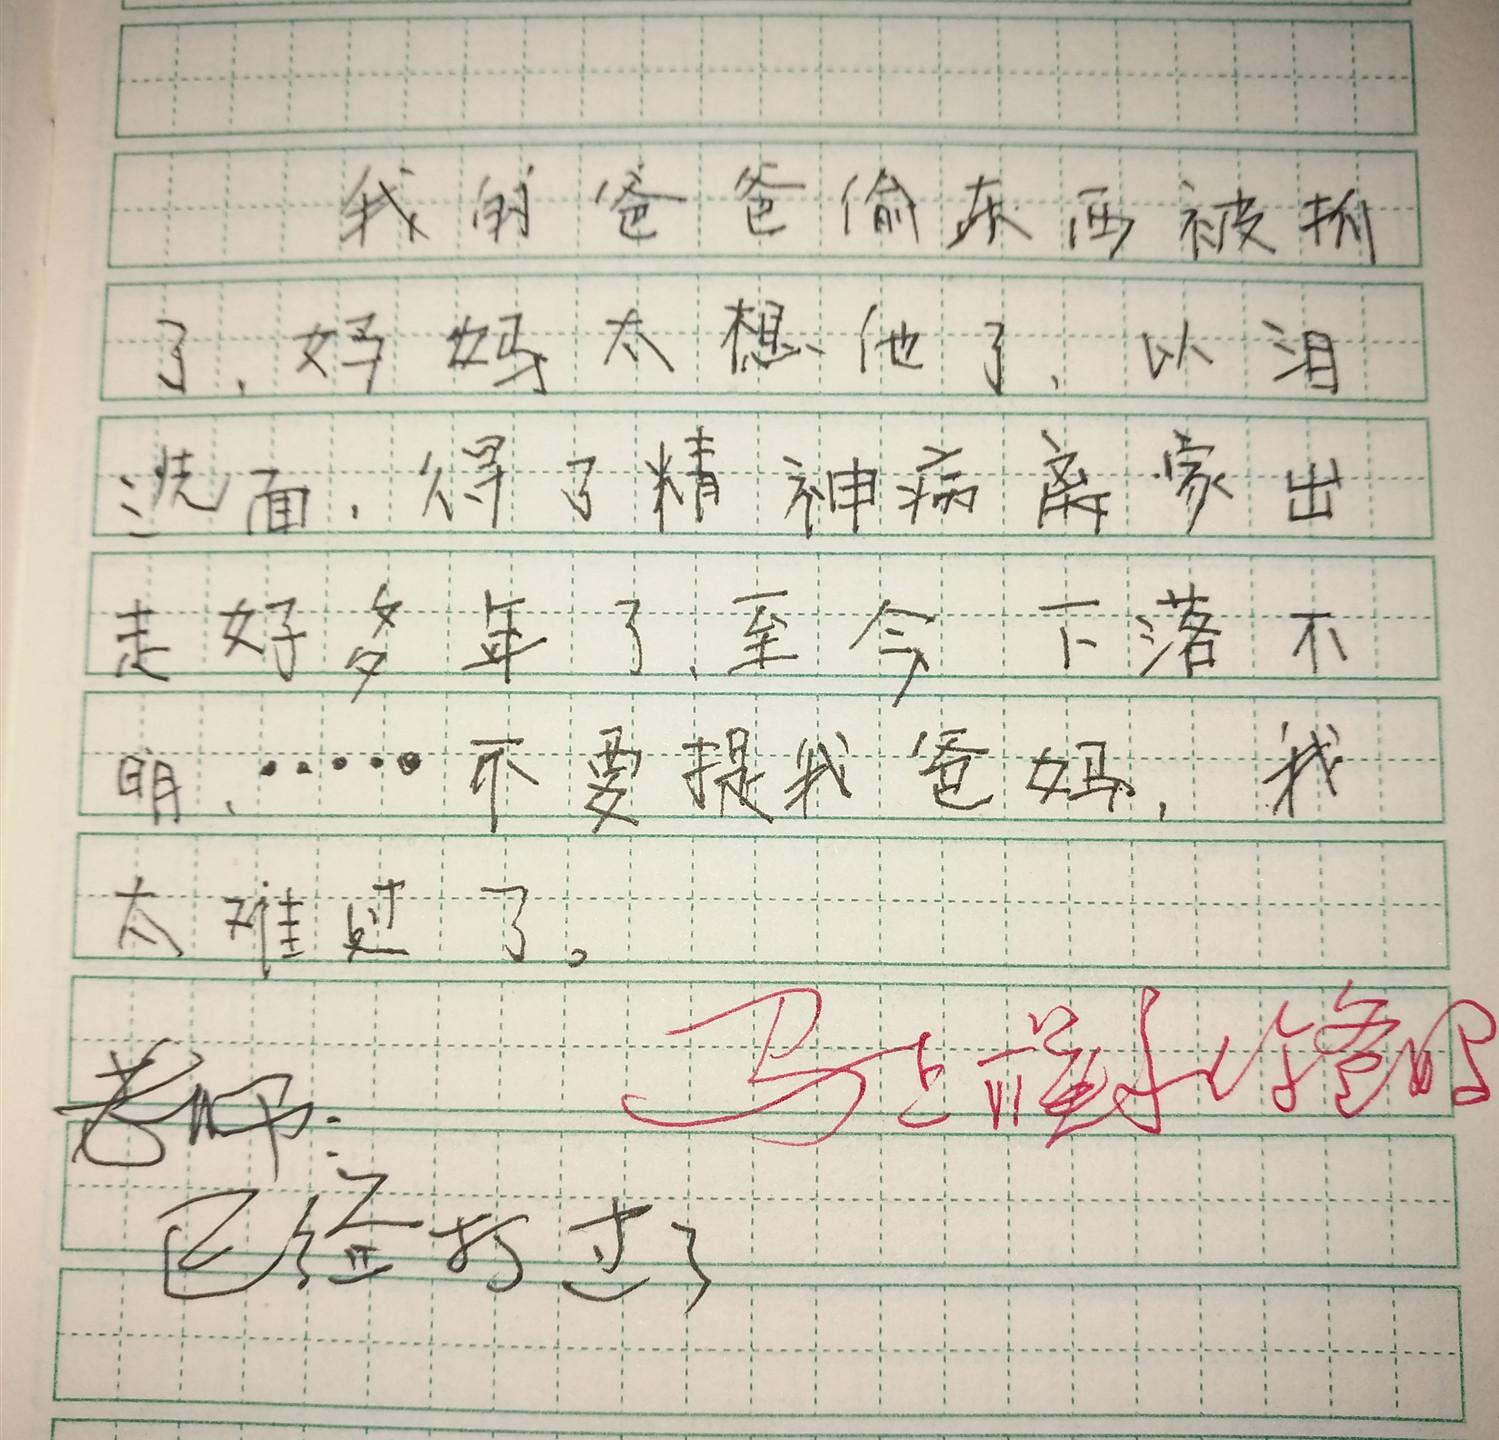 我的爸爸偷东西被抓
了，妈妈太想他了，以泪
洗面，得了精神病离家出
走好多年了，至今下落不
明，……不要提我爸妈，我
太难过了。
马上 你爸
老师：
已经打过了